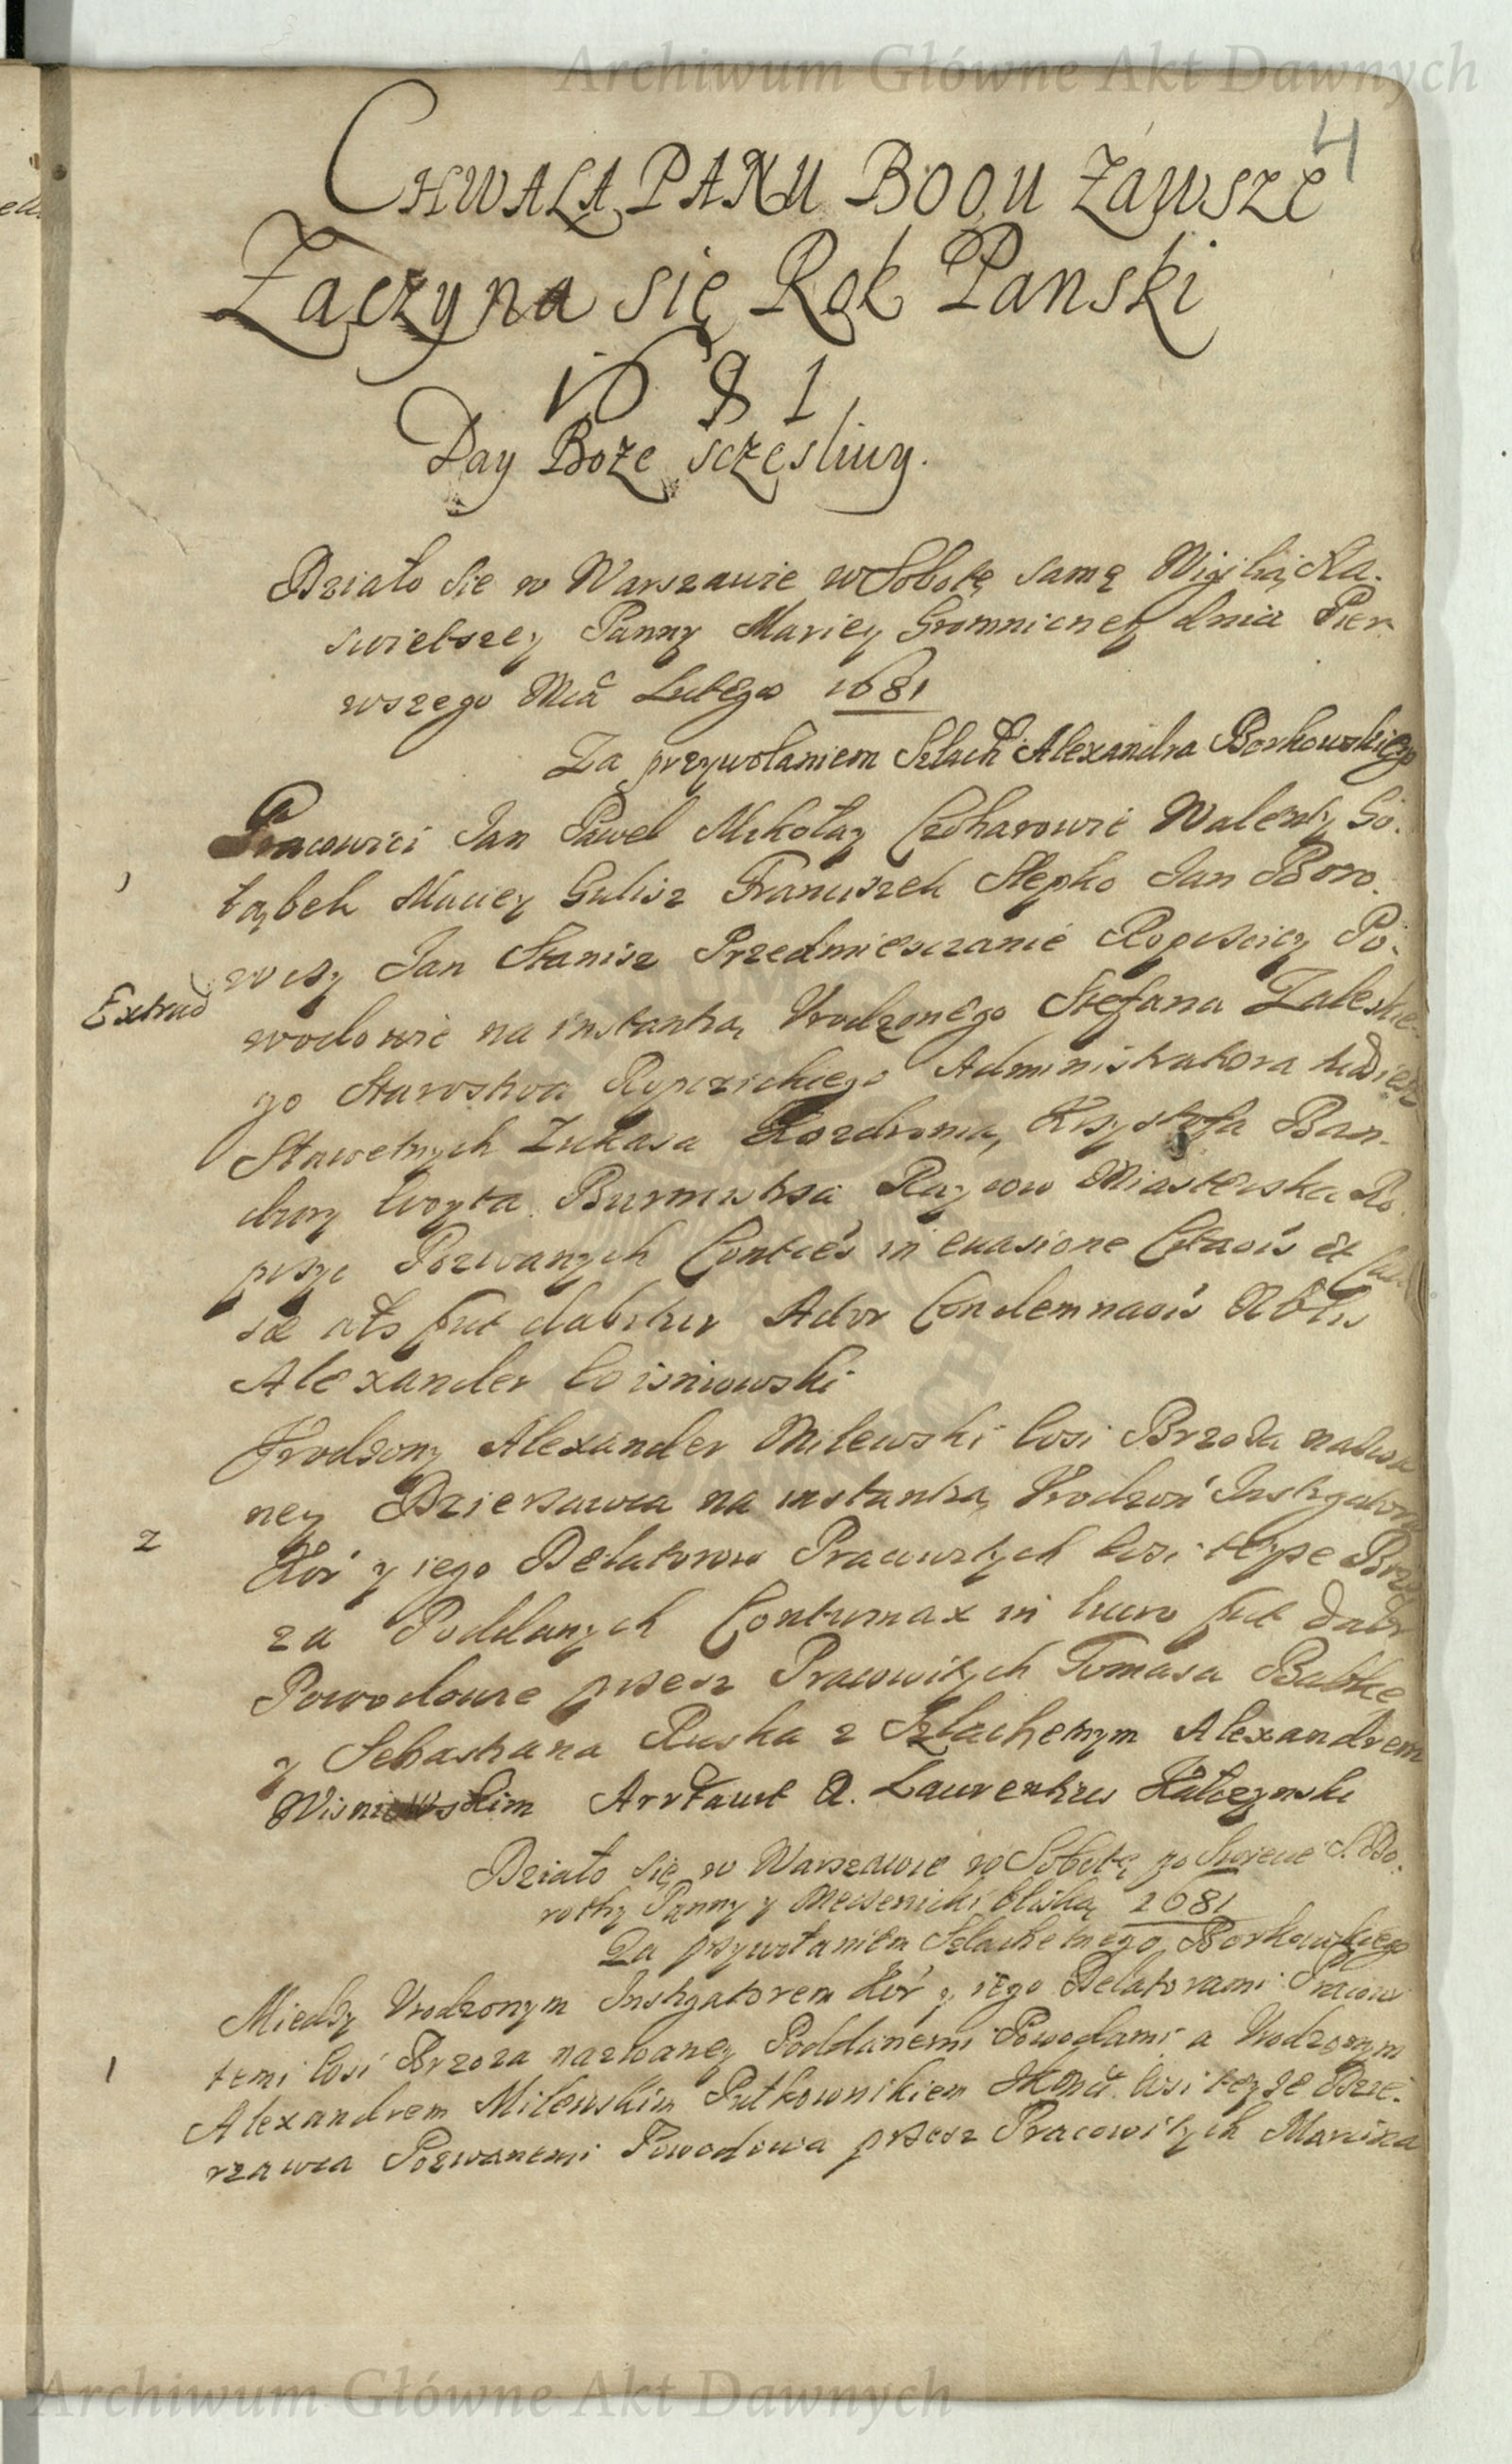 Archiwum Główne Akt Dawnych
4
CHWALA PANU BOGU ZAWSZE
Zaczyna się Rok Panski
1681
Day Boze sczęsliwy.
Działo sie w Warszawie w Sobotę samą Wigilią Na.
swietszey Panny Mariey Gromniczney dnia Pier
wszego Mca Lutego 1681
Za przywołaniem Szlach Alexandra Borkowskiego
Pracowici Jan Paweł Mikołay Walenty Go.
łąbek Maciey Gulisz Franciszek Stepko Jan Boro.
Jan Stanisz Przedmiesczanie Ropczicy Po.
Extrad
wodowie na instantią Vrodzonego Stefana Zaleskie
go Starostwa Ropczickiego Administratora tudziesz
Sławetnych Łukasa Krzysztofa Ban
dury Woyta Burmistrza Raycow Miasteczka Ro
Pozwanych in euasione et
dabitur Actor
Alexander Wisniowski
Vrodzony Alexander Milewski Wsi Brzoza nazwa
ney Dzierzawca na instantią Vrodzon Instygatora
2
Kor y iego Delatorow Pracowitych Wsi teyze Brzo
za Poddanych Contumax in lucro dabr
Powodowie przez Pracowitych Tomasa Babkę
y Sebastiana Ruska z Szlachetnym Alexandrem
Wisniewskim Laurentius
Działo się w Warszawie w Sobotę po Swięcie S. Do.
rothy Panny y Męczenicki bliską 1681
Za przywołaniem Szlachetnego Borkowskiego
Miedzy Vrodzonym Instygatorem Kor y iego Delatorami Pracowi
1
temi Wsi Brzoza nazwaney Poddanemi Powodami a Vrodzonym
Alexandrem Milewskim Pułkownikiem Wsi teyze Dzie.
rzawca Pozwanemi Powodowa przez Pracowitych Marcina
Archiwum Główne Akt Dawnych